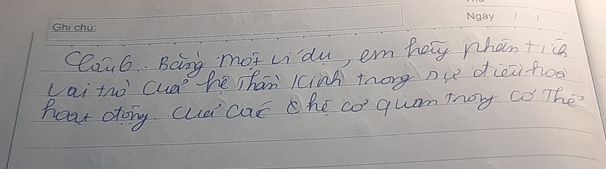 Ngày / /
Ghi chú:
Câu 6. Bằng một ví dụ, em hãy phân tích
vai trò của hệ thần kinh trong sự điều hoà
hoạt động của các hệ cơ quan trong cơ thể